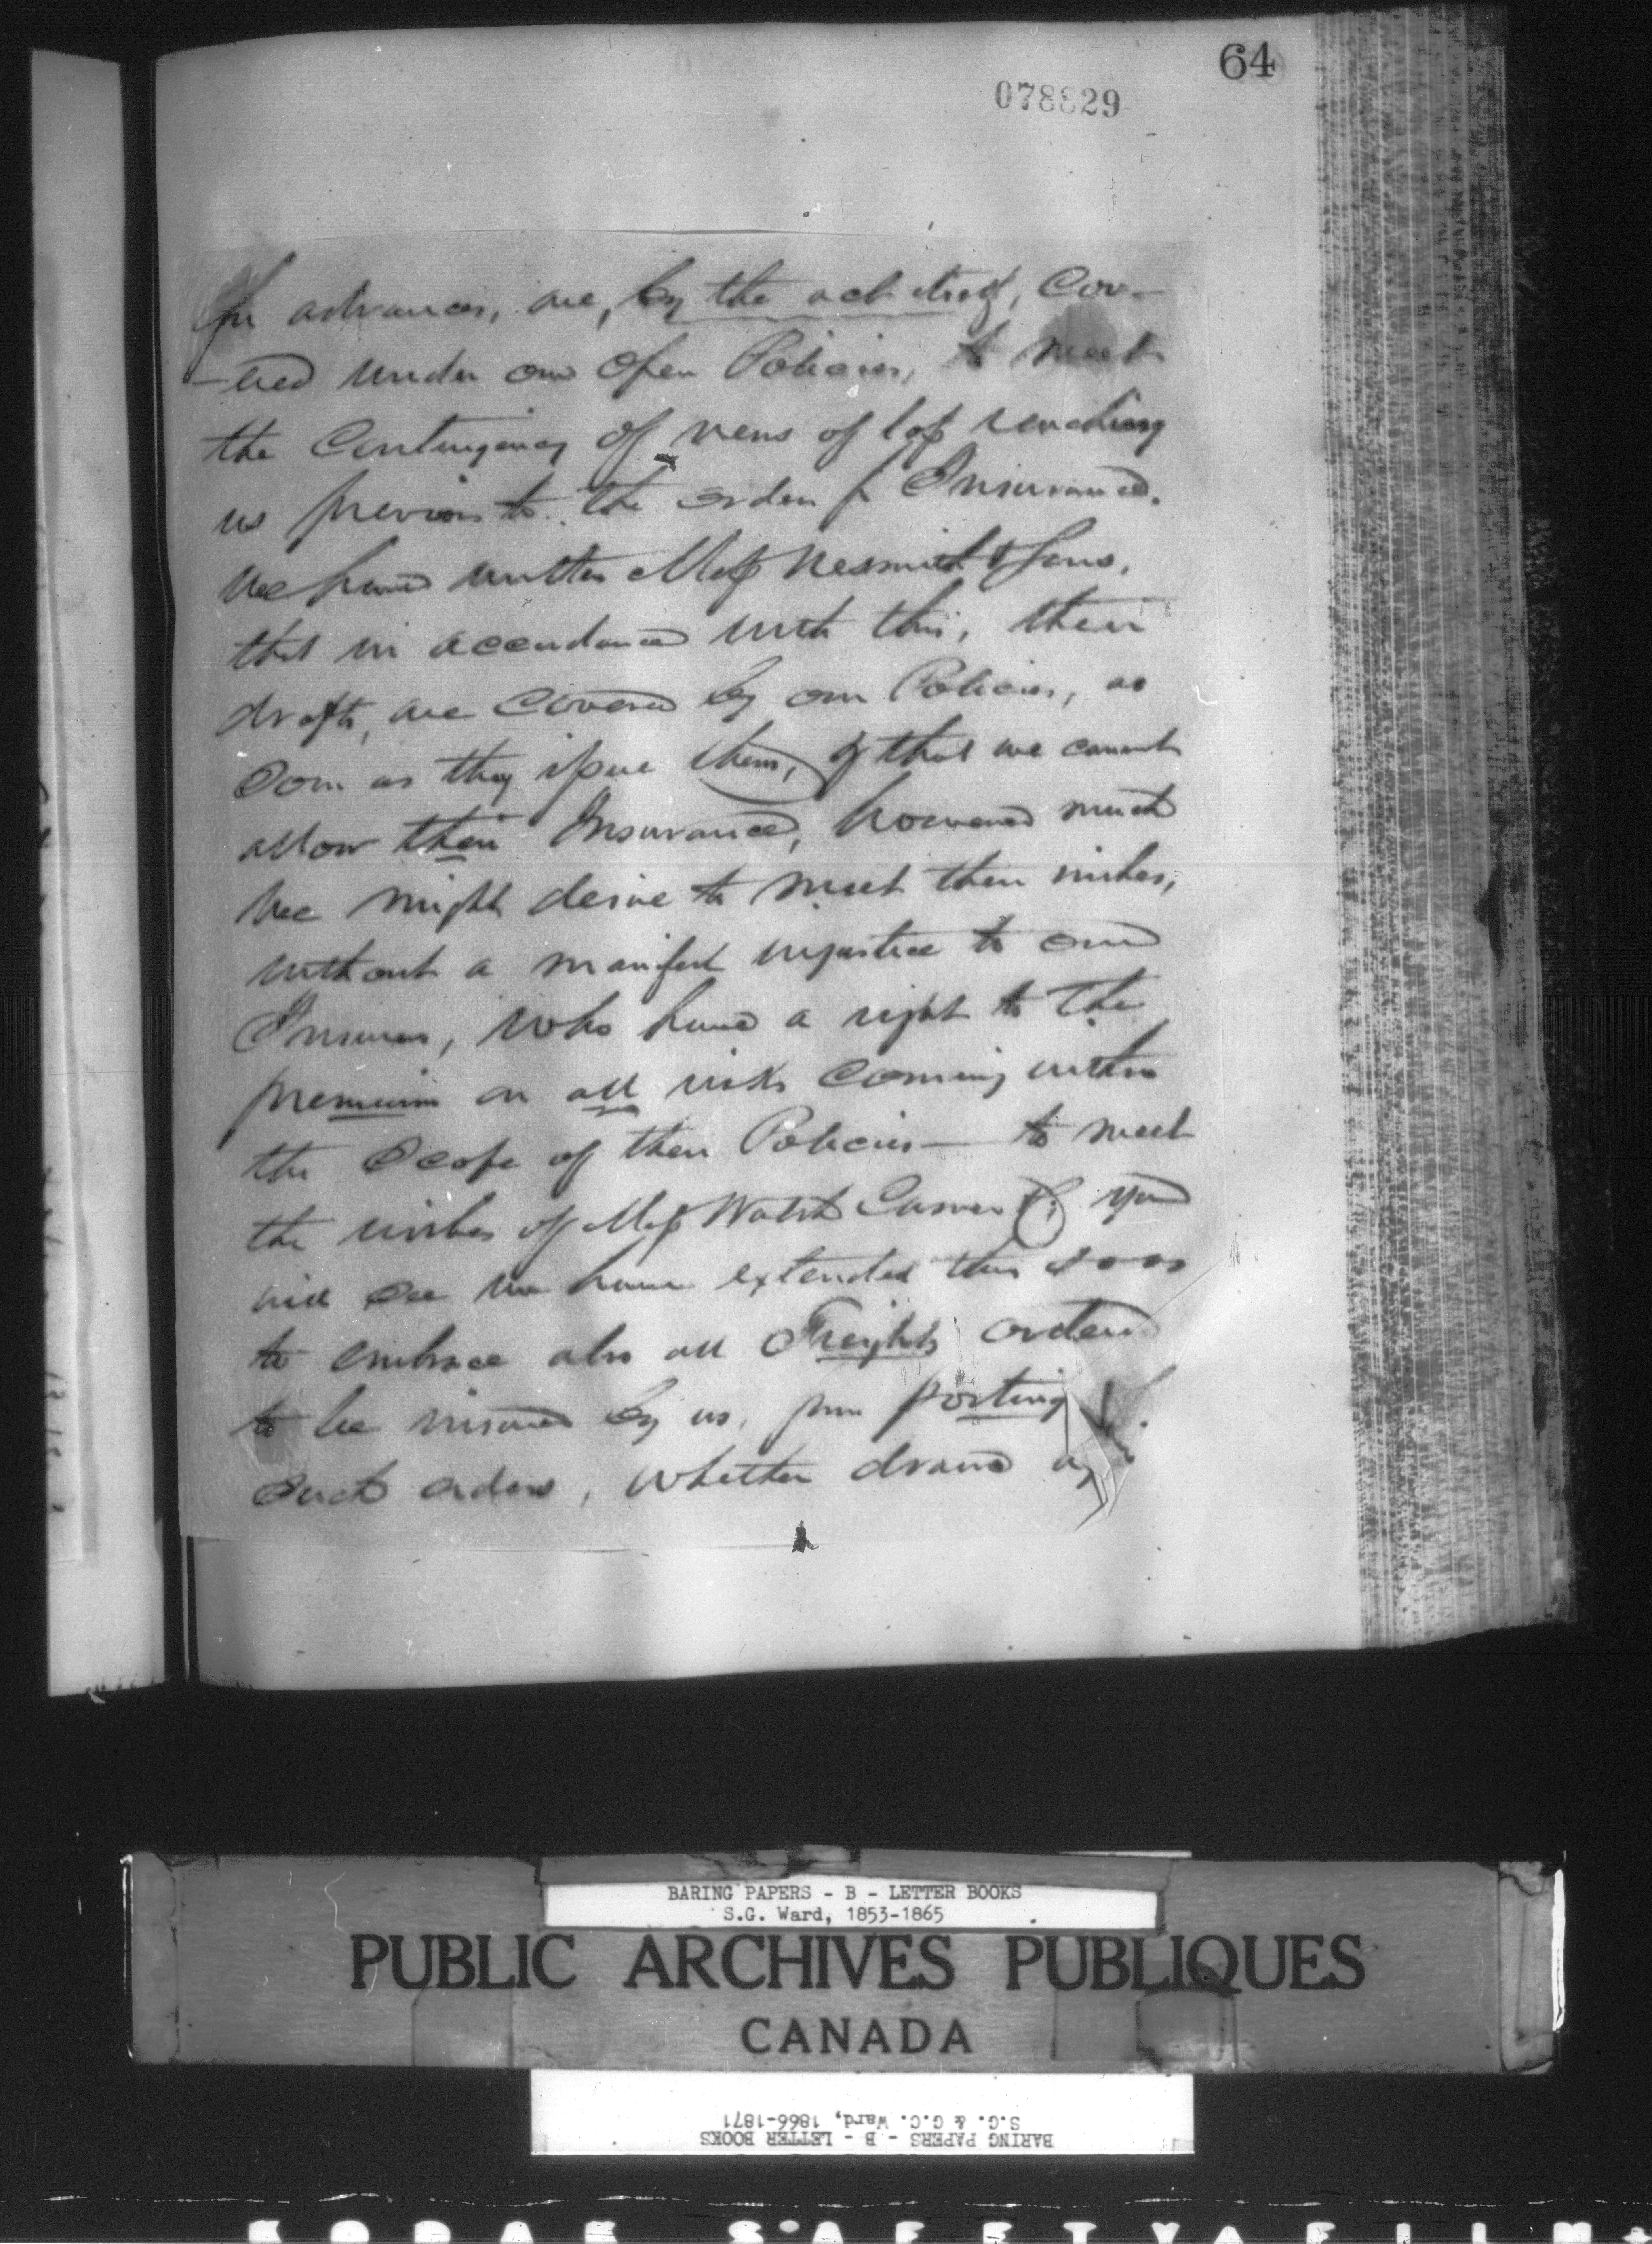 64
078829
for advances, are, by the act itself, Cov-
-ered under our Open Policies, to meet
the Contingency of news of loss reaching
us previous to the orders for Insurance.
We have written Mess Nesmith & Sons,
that in accordance with this, their
drafts, are Covered by our Policies, as
soon as they issue them, & that we cannot
allow their Insurance, however much
we might desire to meet their wishes,
without a manifest injustice to our
Insurers, who have a right to the
premium on all risks coming within
the Scope of their Policies — to meet
the wishes of Mess Walsh Carver & you
will see we have extended this
to embrace also all Freights orders
to be insured by us, from posting
such orders, whether drawn
BARING PAPERS - B - LETTER BOOKS
S.G. Ward, 1853-1865
PUBLIC ARCHIVES PUBLIQUES
CANADA
BARING PAPERS - B - LETTER BOOKS
S.G. & G.C. Ward, 1866-1871
KODAK SAFETY FILM